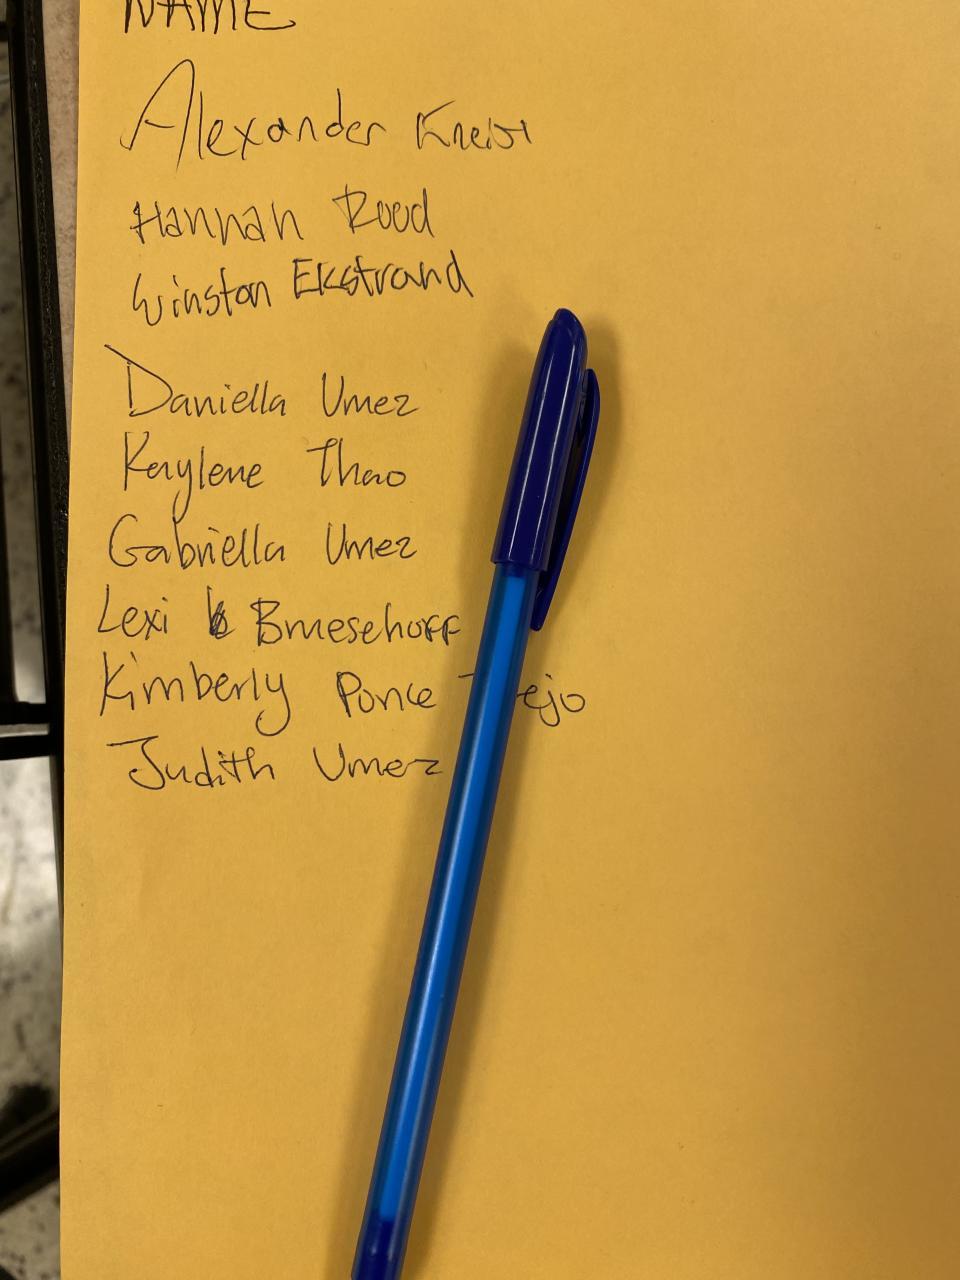 NAME
Alexander
Hannah Rood
Winston Ekstrand
Daniella Umez
Kaylene Thao
Gabriella Umez
Lexi
Kimberly Ponce
Judith Umez